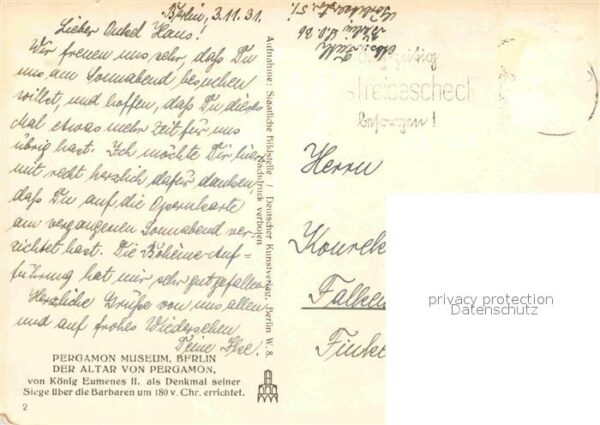 Berlin, 3.11.31.
Lieber Onkel Hans!
Wir freuen uns sehr, daß Du
uns am Sonnabend besuchen
willst, und hoffen, daß Du dies-
mal etwas mehr Zeit für uns
übrig hast. Ich möchte Dir hier
mit recht herzlich dafür danken,
daß Du auf die Opernkarte
am vergangenen Sonnabend ver-
zichtet hast. Die Bohème-Auf-
führung hat mir sehr gut gefallen.
Herzliche Grüße von uns allen
und auf frohes Wiedersehen
Deine Ilse.
PERGAMON MUSEUM, BERLIN
DER ALTAR VON PERGAMON,
von König Eumenes II. als Denkmal seiner
Siege über die Barbaren um 180 v. Chr. errichtet.
2
Aufnahme: Staatliche Bildstelle / Deutscher Kunstverlag, Berlin W. 8.
Nachdruck verboten
Berlin
streisescheck
besorgen!
Herrn
Falken
privacy protection
Datenschutz